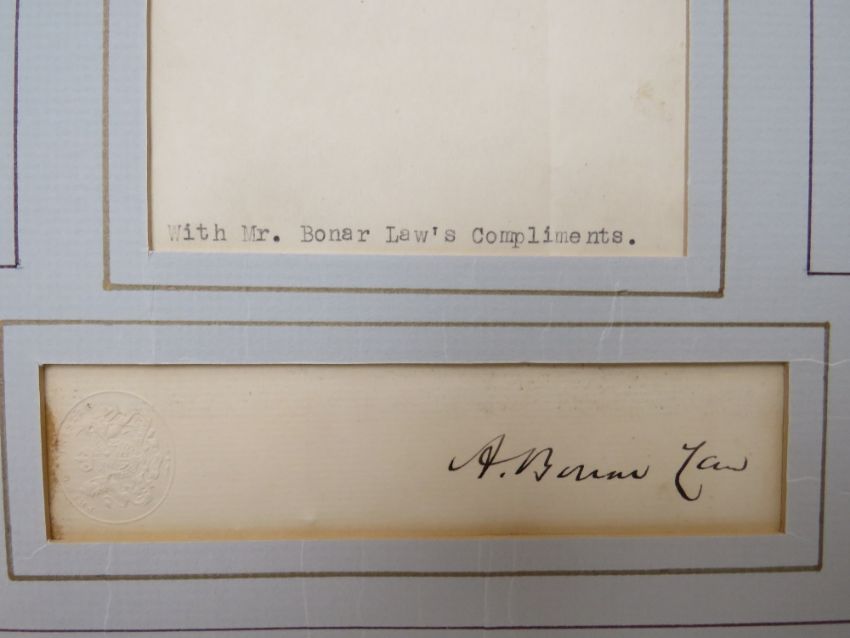 With Mr. Bonar Law's Compliments.
A. Bonar Law